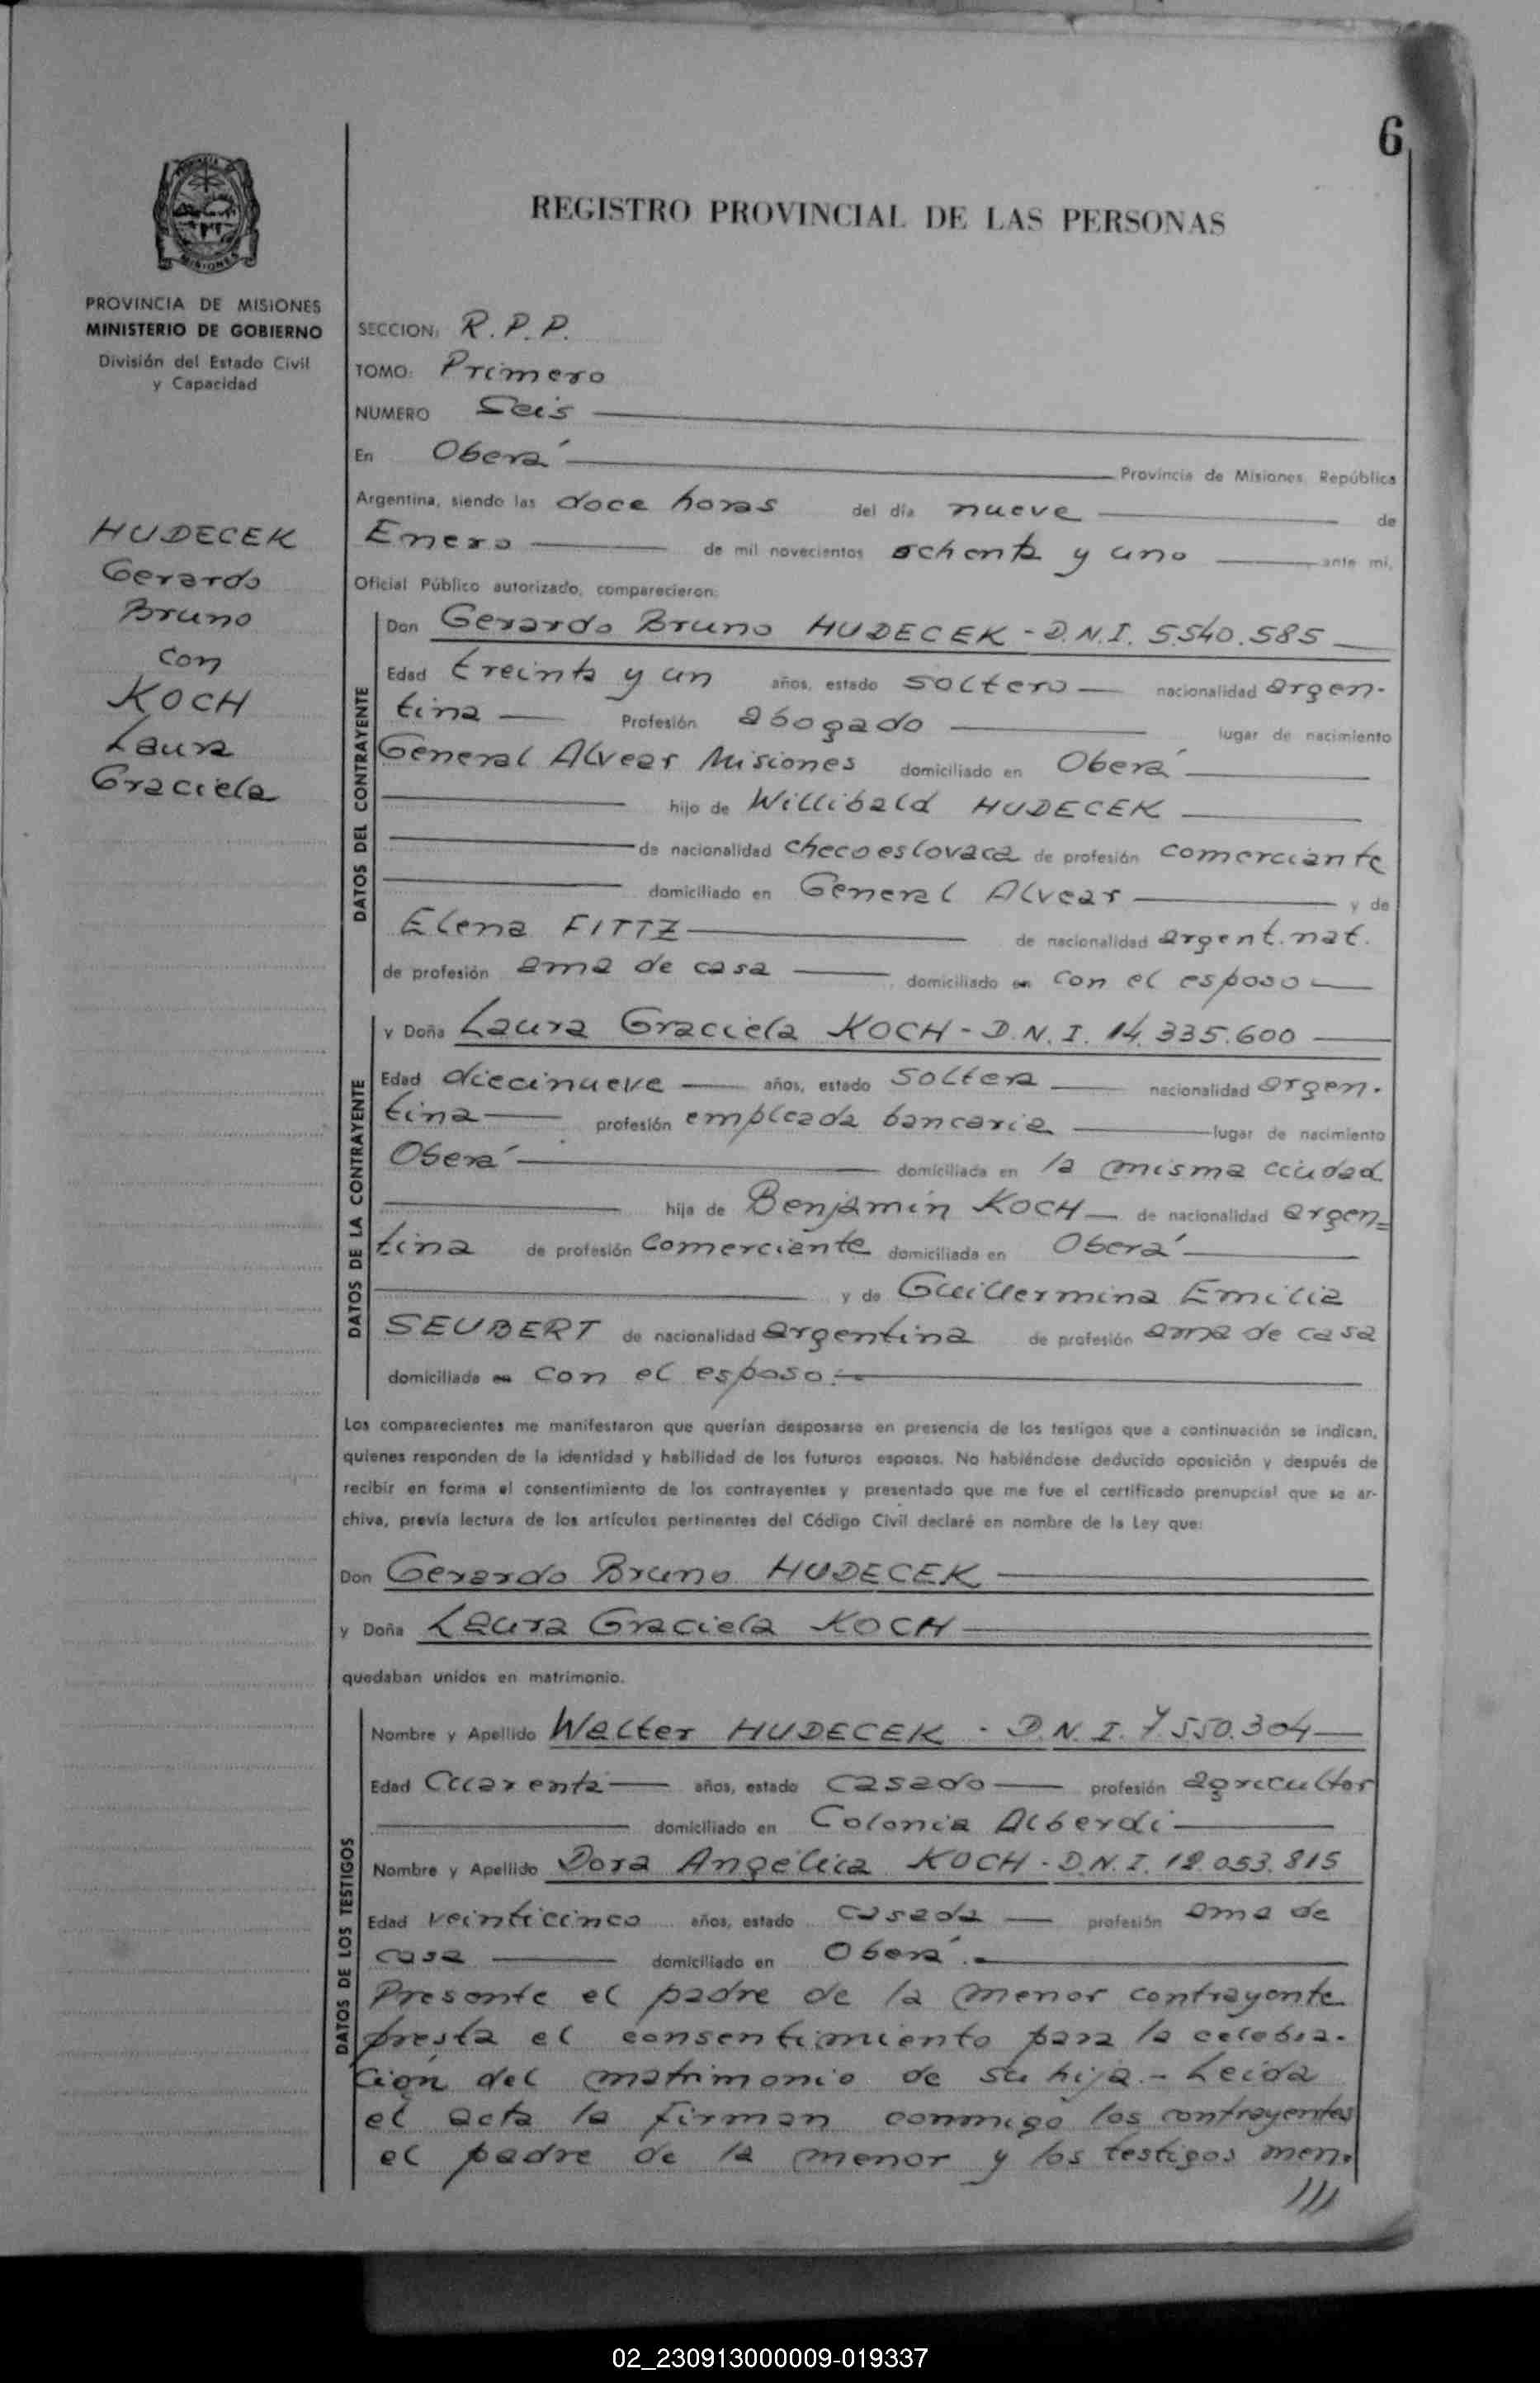 6
PROVINCIA DE MISIONES
MINISTERIO DE GOBIERNO
División del Estado Civil
y Capacidad
HUDECEK
Gerardo
Bruno
con
KOCH
Laura
Graciela
REGISTRO PROVINCIAL DE LAS PERSONAS
SECCION: R.P.P.
TOMO: Primero
NUMERO Seis
En Oberá Provincia de Misiones, República
Argentina, siendo las doce horas del día nueve de
Enero de mil novecientos ochenta y uno ante mi,
Oficial Público autorizado, comparecieron:
DATOS DEL CONTRAYENTE
Don Gerardo Bruno HUDECEK - D.N.I. 5.540.585
Edad treinta y un años, estado soltero nacionalidad argen-
tina Profesión abogado lugar de nacimiento
General Alvear Misiones domiciliado en Oberá
hijo de Willibald HUDECEK
de nacionalidad checoeslovaca de profesión comerciante
domiciliado en General Alvear y de
Elena FITTZ de nacionalidad argent. nat.
de profesión ama de casa domiciliado en con el esposo
DATOS DE LA CONTRAYENTE
y Doña Laura Graciela KOCH - D.N.I. 14.335.600
Edad diecinueve años, estado soltera nacionalidad argen-
tina profesión empleada bancaria lugar de nacimiento
Oberá domiciliada en la misma ciudad
hija de Benjamín KOCH de nacionalidad argen=
tina de profesión comerciante domiciliada en Oberá
y de Guillermina Emilia
SEUBERT de nacionalidad argentina de profesión ama de casa
domiciliada en con el esposo.-
Los comparecientes me manifestaron que querían desposarse en presencia de los testigos que a continuación se indican,
quienes responden de la identidad y habilidad de los futuros esposos. No habiéndose deducido oposición y después de
recibir en forma el consentimiento de los contrayentes y presentado que me fue el certificado prenupcial que se ar-
chiva, previa lectura de los artículos pertinentes del Código Civil declaré en nombre de la Ley que:
Don Gerardo Bruno HUDECEK
y Doña Laura Graciela KOCH
quedaban unidos en matrimonio.
DATOS DE LOS TESTIGOS
Nombre y Apellido Walter HUDECEK - D.N.I. 7.550.304
Edad Cuarenta años, estado casado profesión agricultor
domiciliado en Colonia Alberdi
Nombre y Apellido Dora Angélica KOCH - D.N.I. 12.053.815
Edad veinticinco años, estado casada profesión ama de
casa domiciliado en Oberá.
Presente el padre de la menor contrayente
presta el consentimiento para la celebra-
ción del matrimonio de su hija.- Leída
el acta la firman conmigo los contrayentes
el padre de la menor y los testigos men-
///
02_230913000009-019337